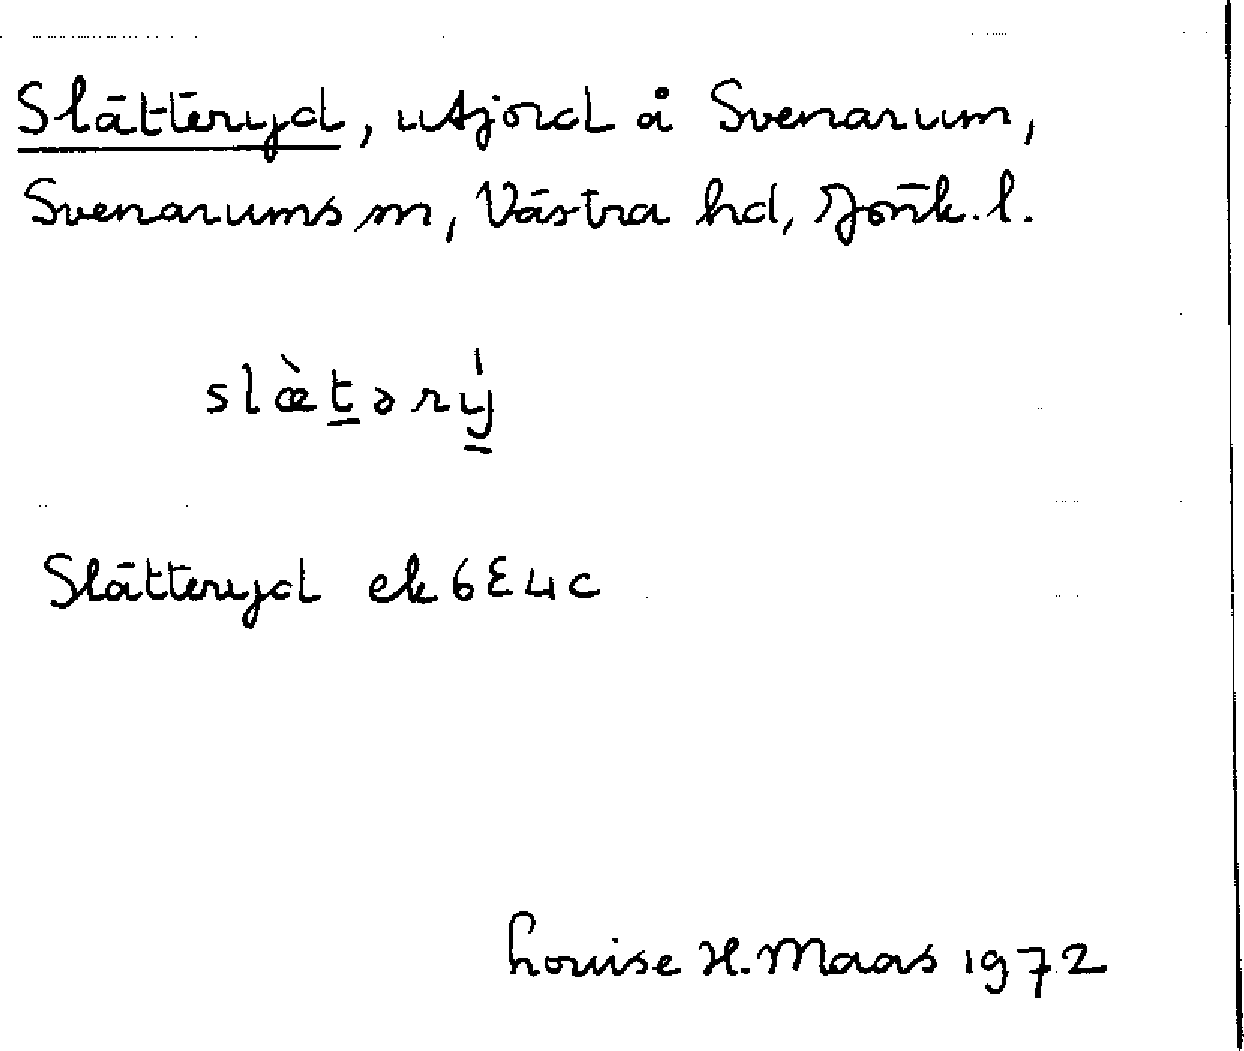 Slätteryd, utjord å Svenarum,
Svenarums sn, Västra hd, Jönk. l.
slæ̀t̠ərý̳
Slätteryd ek 6E4c
Louise H. Maas 1972